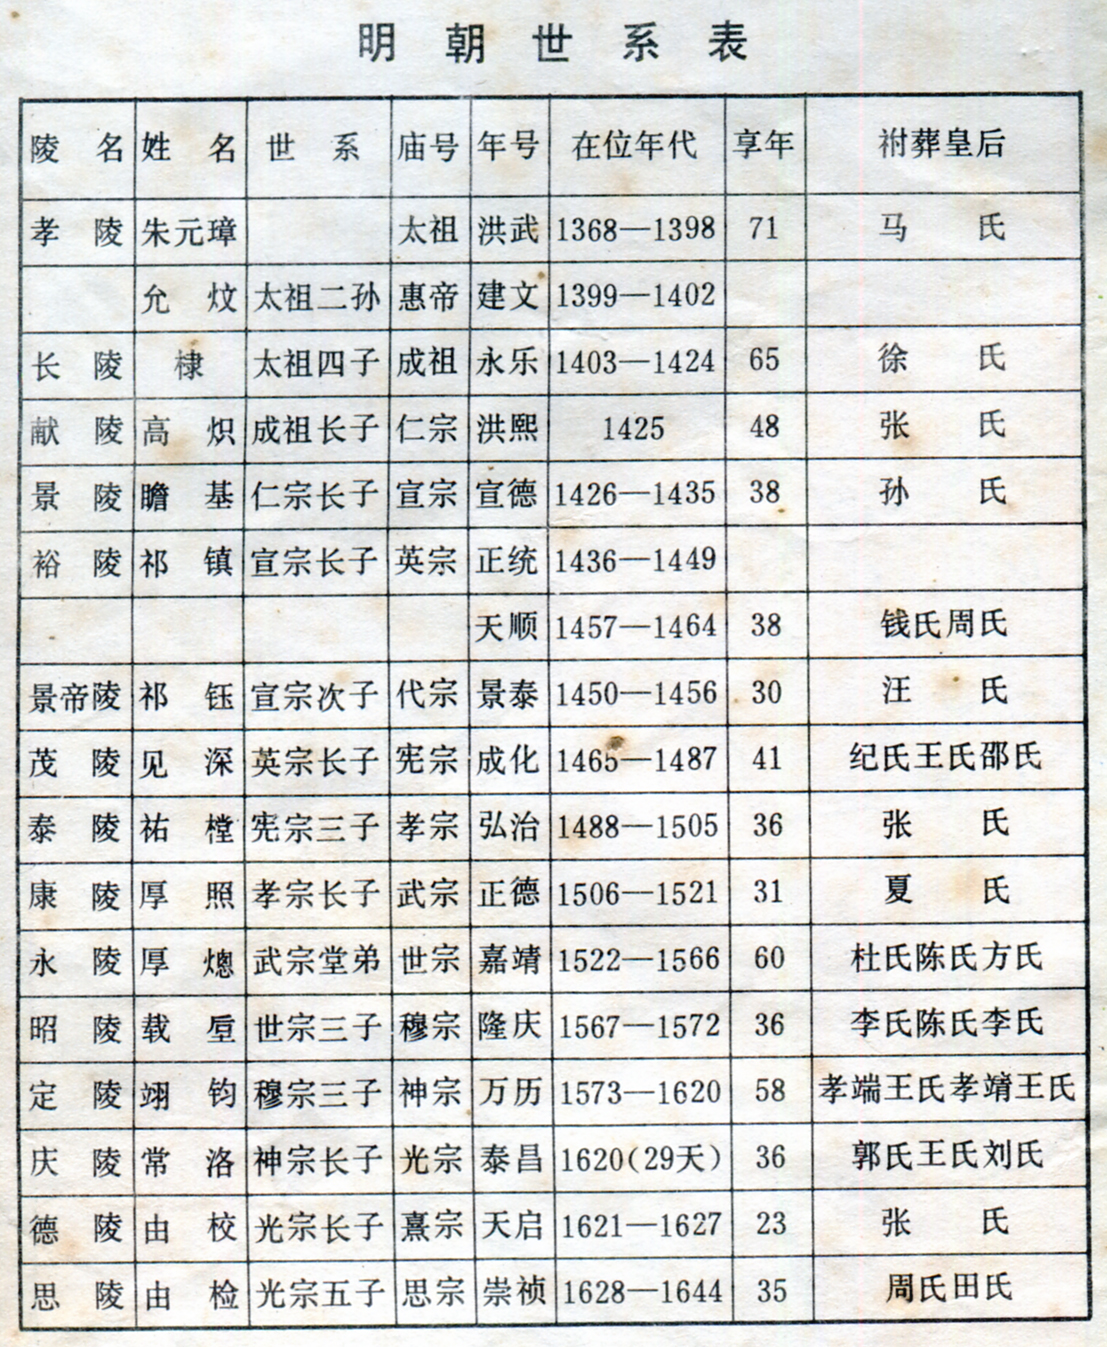 明朝世系表
陵名 姓名 世系 庙号 年号 在位年代 享年 祔葬皇后
孝陵 朱元璋 太祖 洪武 1368—1398 71 马氏
允炆 太祖二孙 惠帝 建文 1399—1402
长陵 棣 太祖四子 成祖 永乐 1403—1424 65 徐氏
献陵 高炽 成祖长子 仁宗 洪熙 1425 48 张氏
景陵 瞻基 仁宗长子 宣宗 宣德 1426—1435 38 孙氏
裕陵 祁镇 宣宗长子 英宗 正统 1436—1449
天顺 1457—1464 38 钱氏周氏
景帝陵 祁钰 宣宗次子 代宗 景泰 1450—1456 30 汪氏
茂陵 见深 英宗长子 宪宗 成化 1465—1487 41 纪氏王氏邵氏
泰陵 祐樘 宪宗三子 孝宗 弘治 1488—1505 36 张氏
康陵 厚照 孝宗长子 武宗 正德 1506—1521 31 夏氏
永陵 厚熜 武宗堂弟 世宗 嘉靖 1522—1566 60 杜氏陈氏方氏
昭陵 载垕 世宗三子 穆宗 隆庆 1567—1572 36 李氏陈氏李氏
定陵 翊钧 穆宗三子 神宗 万历 1573—1620 58 孝端王氏孝靖王氏
庆陵 常洛 神宗长子 光宗 泰昌 1620(29天) 36 郭氏王氏刘氏
德陵 由校 光宗长子 熹宗 天启 1621—1627 23 张氏
思陵 由检 光宗五子 思宗 崇祯 1628—1644 35 周氏田氏